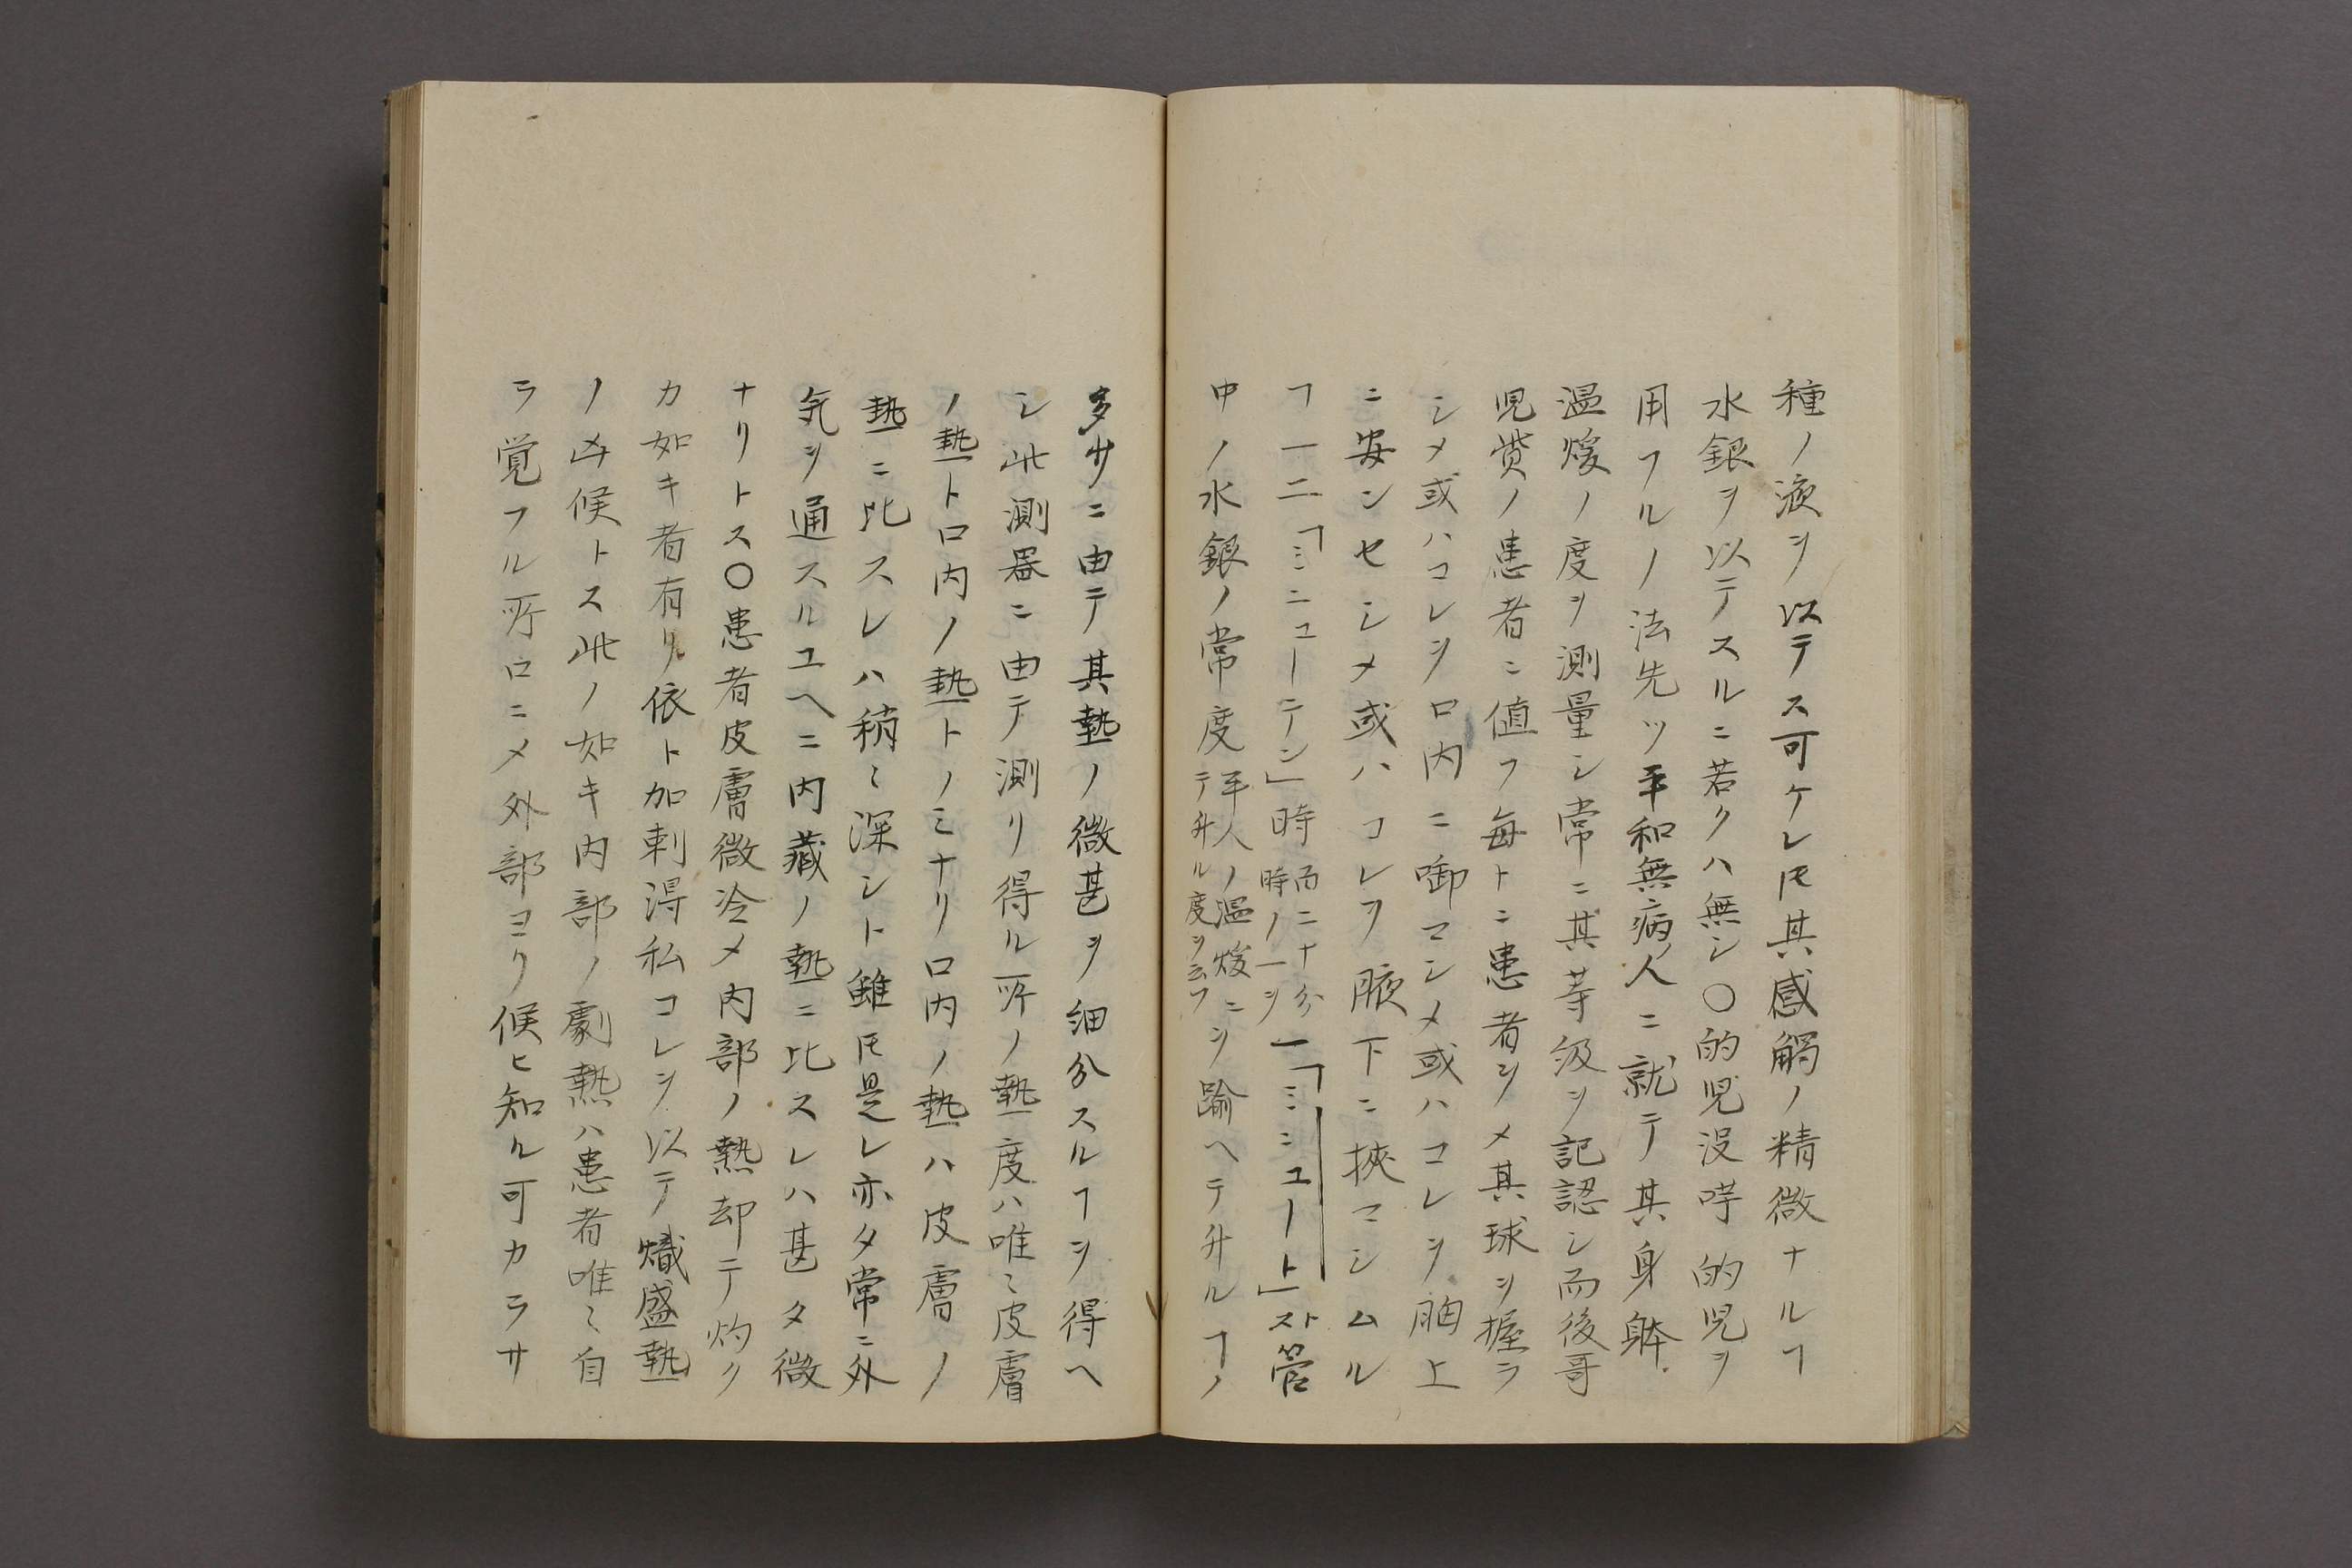 種ノ液ヲ以テス可ケレ𪜈其感觸ノ精微ナルヿ
水銀ヲ以テスルニ若クハ無シ〇的児没哷的児ヲ
用フルノ法先ツ平和無病人ニ就テ其身躰
温煖ノ度ヲ測量シ常ニ其等級ヲ記認シ而後哥
児赀ノ患者ニ値フ毎トニ患者ヲメ其球ヲ握ラ
シメ或ハコレヲ口内ニ啣マシメ或ハコレヲ胸上
ニ安ンセシメ或ハコレヲ腋下ニ挾マシムル
ヿ一二「ミニューテン」時
而二十分
時ノ一ヲ
一「ミニュート」スト管
中ノ水銀ノ常度
平人ノ温煖ニ
テ升ル度ヲ云フ
ヲ踰ヘテ升ルヿノ
多少ニ由テ其熱ノ微甚ヲ細分スルヿヲ得ヘ
シ此測器ニ由テ測リ得ル所ノ熱度ハ唯〻皮膚
ノ熱ト口内ノ熱トノミナリ口内ノ熱ハ皮膚ノ
熱ニ比スレハ稍〻深シト雖𪜈是レ亦タ常ニ外
気ヲ通スルユヘニ内藏ノ熱ニ比スレハ甚タ微
ナリトス〇患者皮膚微冷メ内部ノ熱却テ灼ク
カ如キ者有リ依ト加剌淂私コレヲ以テ熾盛熱
ノ凶候トス此ノ如キ内部ノ劇熱ハ患者唯〻自
ラ覚フル所ロニメ外部ヨリ候ヒ知ル可カラサ